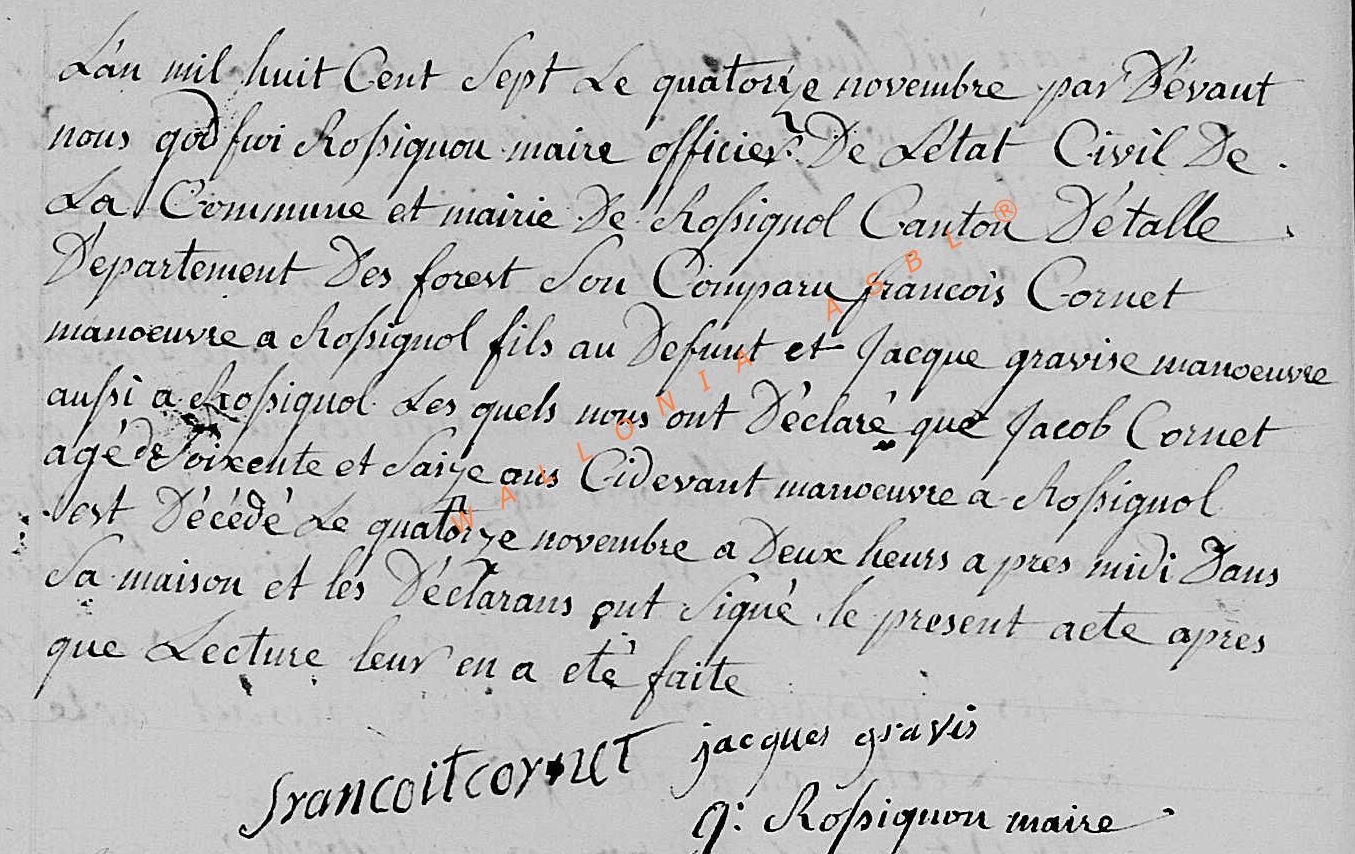 L'an mil huit Cent Sept Le quatorze novembre par Dévant
nous godfroi Rossignon maire officier De Létat Civil De
La Commune et mairie De Rossignol Canton Détalle
Département Des forest Son Comparu francois Cornet
manoeuvre a Rossignol fils au Défunt et Jacque gravise manoeuvre
aussi a Rossignol Les quels nous ont Déclaré que Jacob Cornet
agé de Soixente et Saize ans Cidevant manoeuvre a Rossignol
est Décédé Le quatorze novembre a Deux heurs a pres midi Dans
Sa maison et les Déclarans ont Signé le present acte apres
que Lecture leur en a eté faite
francoit cornet jacques gravis
g: Rossignon maire
WALLONIA ASBL ®